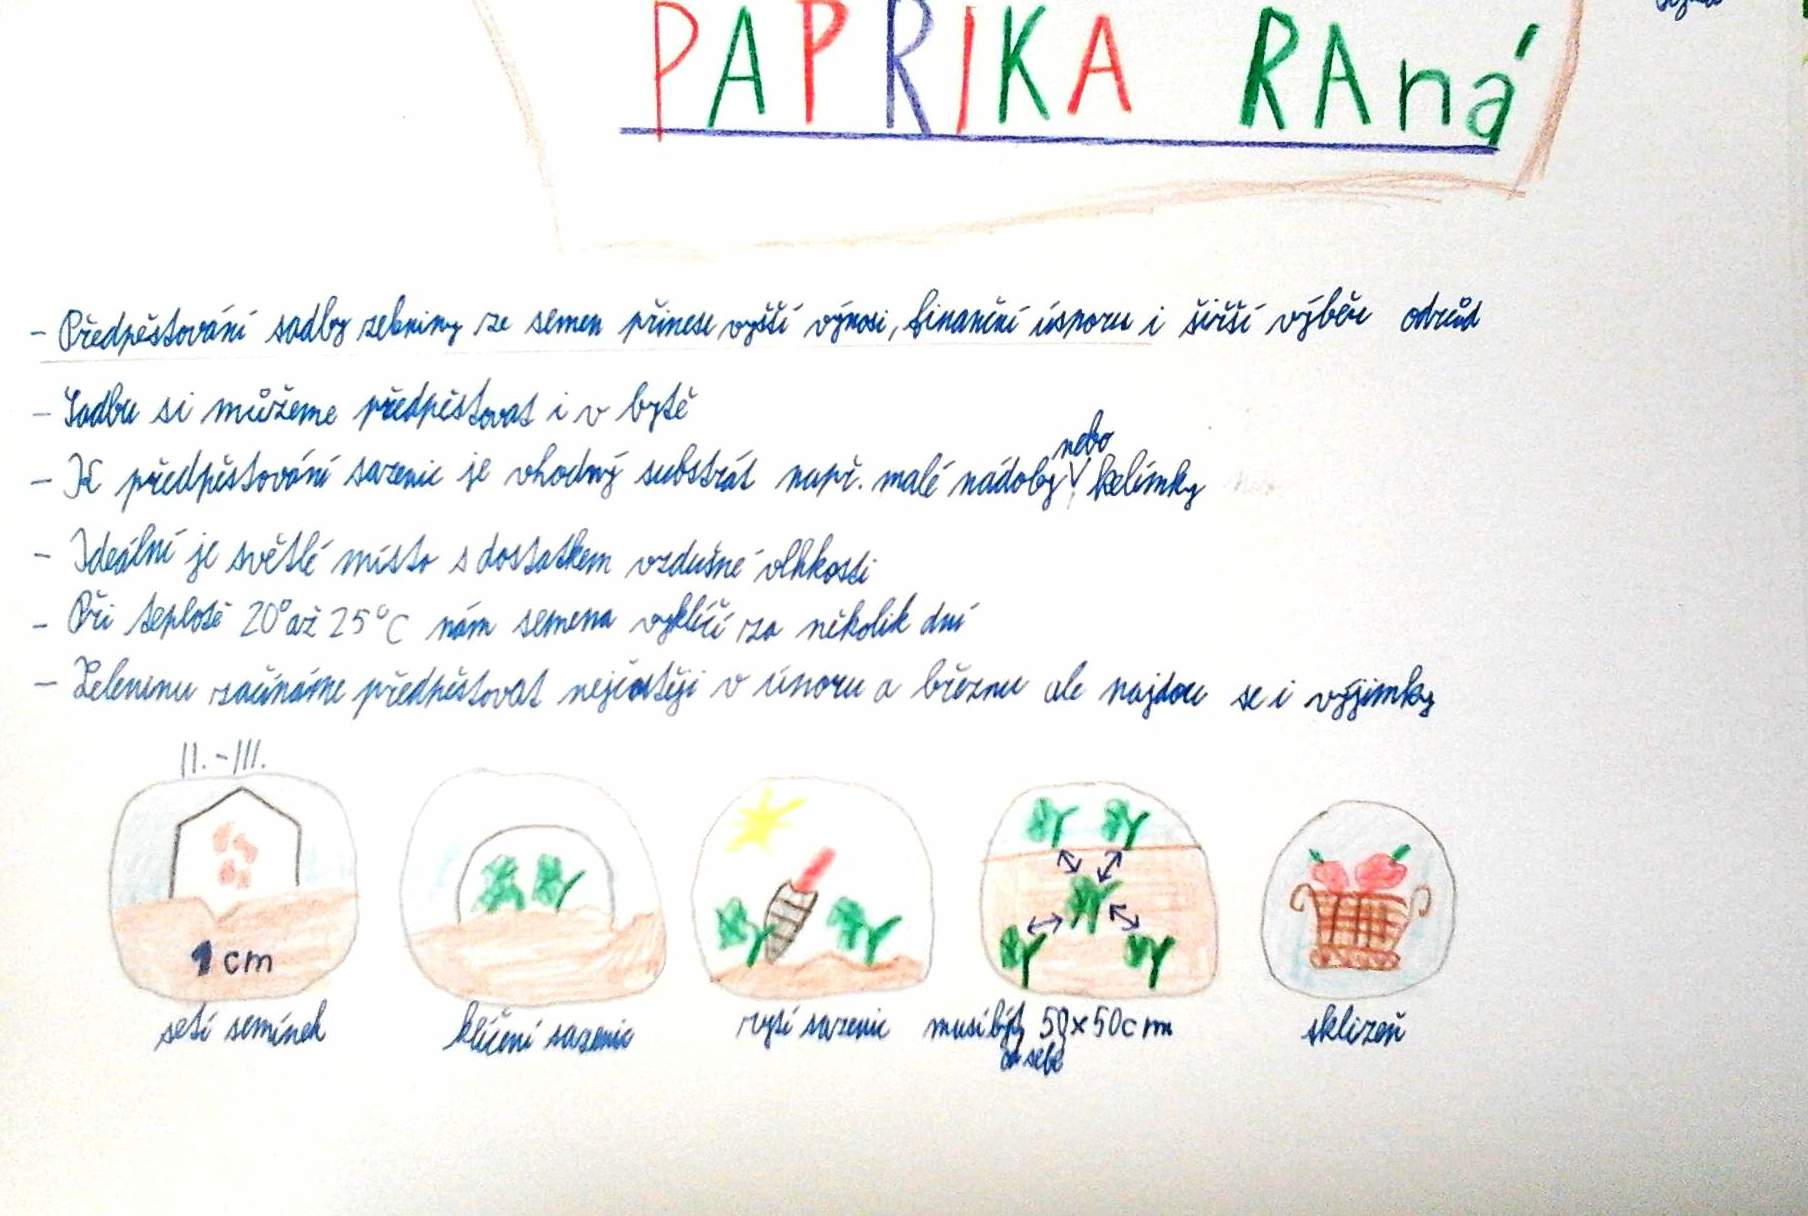 PAPRIKA RAná
- Předpěstování sadby zeleniny ze semen přinese vyšší výnosi, finanční úsporu i širší výběr odrůd
- Sadbu si můžeme předpěstovat i v bytě
nebo
- K předpěstování sazenic je vhodný substrát např. malé nádoby kelímky
- Ideální je světlé místo s dostatkem vzdušné vlhkosti
- Při teplotě 20° až 25°C nám semena vyklíčí za několik dní
- Zeleninu začínáme předpěstovat nejčastěji v únoru a březnu ale najdou se i výjimky
II.-III.
1 cm
setí semínek
klíčení sazenic
rytí sazenic
musí být 50x50cm
od sebe
sklizeň